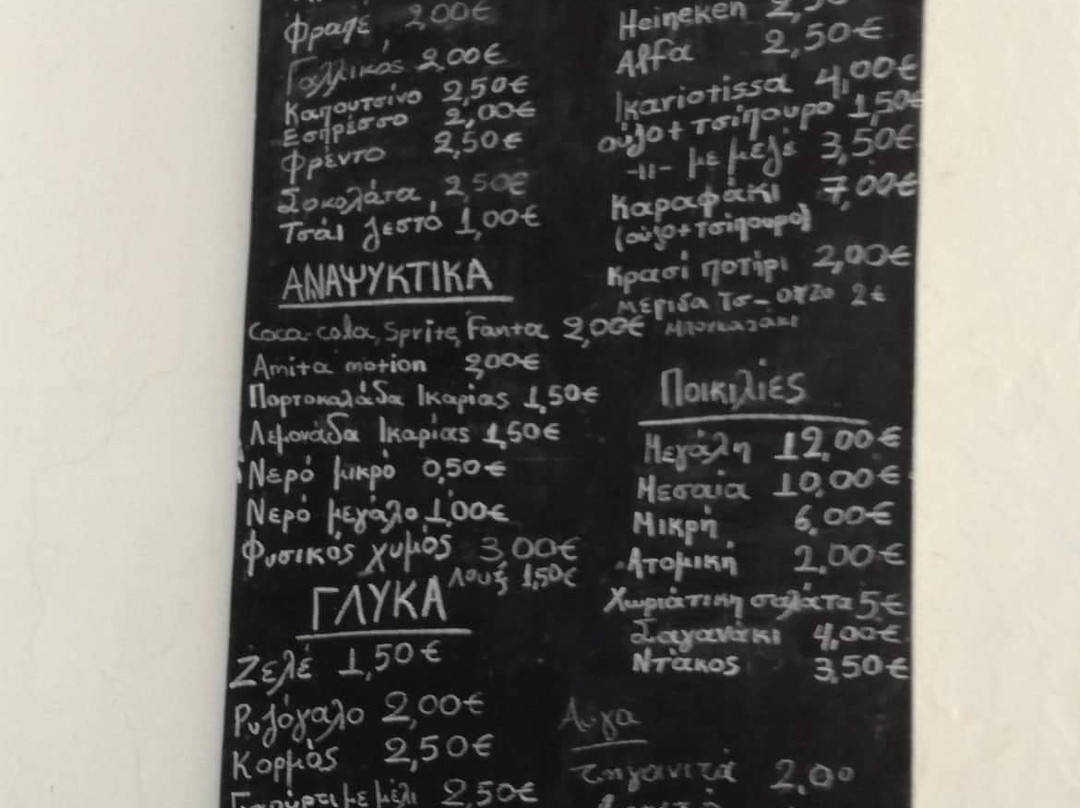 Φραπέ 2,00€
Γαλλικός 2,00€
Καπουτσίνο 2,50€
Εσπρέσσο 2,00€
Φρέντο 2,50€
Σοκολάτα 2,50€
Τσάι ζεστό 1,00€
ΑΝΑΨΥΚΤΙΚΑ
Coca-cola, Sprite, Fanta 2,00€
Amita motion 2,00€
Πορτοκαλάδα Ικαρίας 1,50€
Λεμονάδα Ικαρίας 1,50€
Νερό μικρό 0,50€
Νερό μεγάλο 1,00€
Φυσικός χυμός 3,00€
Λουξ 1,50€
ΓΛΥΚΑ
Ζελέ 1,50€
Ρυζόγαλο 2,00€
Κορμός 2,50€
Γιαούρτι με μέλι 2,50€
Heineken 2,50
Alfa 2,50€
Ikariotissa 4,00€
ούζο + τσίπουρο 1,50€
-||- με μεζέ 3,50€
Καραφάκι 7,00€
(ούζο + τσίπουρο)
Κρασί ποτήρι 2,00€
ΜΕΡΙΔΑ ΤΣ- ΟΥΖΟ 2€
ΜΠΟΥΚΑΛΑΚΙ
Ποικιλίες
Μεγάλη 12,00€
Μεσαία 10,00€
Μικρή 6,00€
Ατομική 2,00€
Χωριάτικη σαλάτα 5€
Σαγανάκι 4,00€
Ντάκος 3,50€
Αυγα
τηγανιτά 2,00